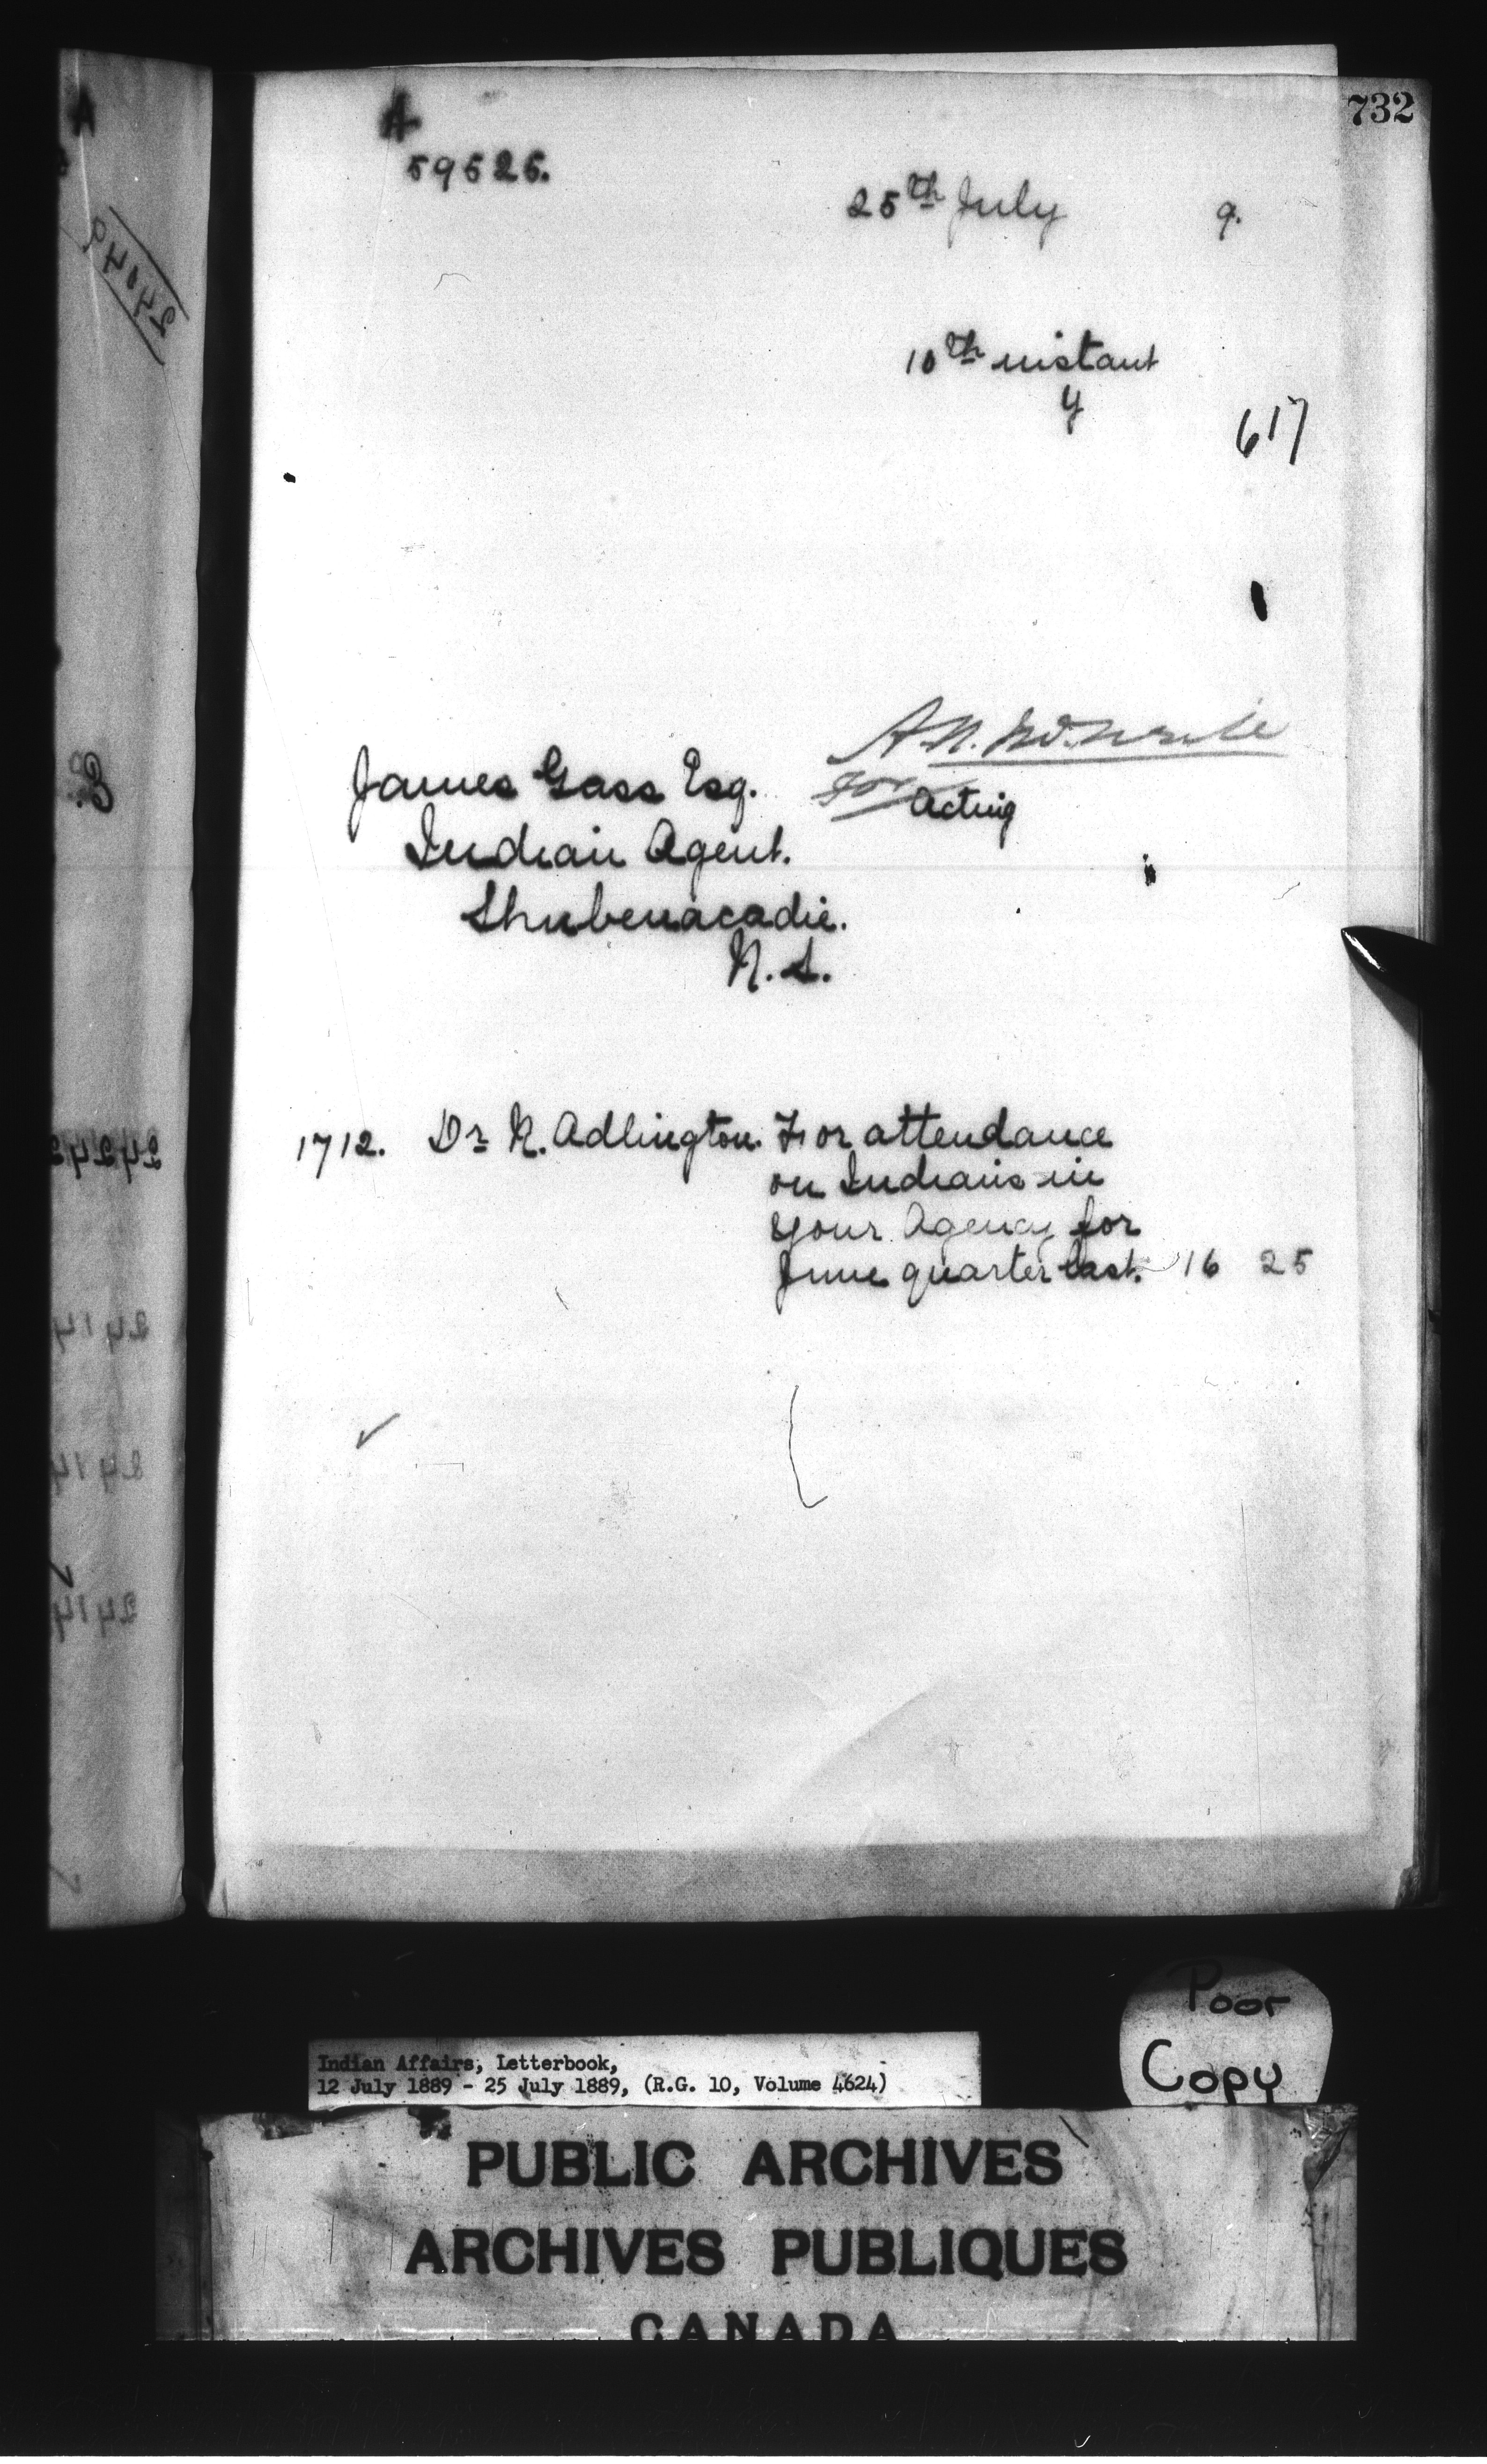 732
A
59525.
25th July 9.
10th instant
y
617
James Gass Esq.
For Acting
Indian Agent.
Shubenacadie.
N.S.
1712. Dr N. Adlington. For attendance
on Indians in
your Agency for
June quarter last. 16 25
Poor
Copy
Indian Affairs, Letterbook,
12 July 1889 - 25 July 1889, (R.G. 10, Volume 4624)
PUBLIC ARCHIVES
ARCHIVES PUBLIQUES
CANADA